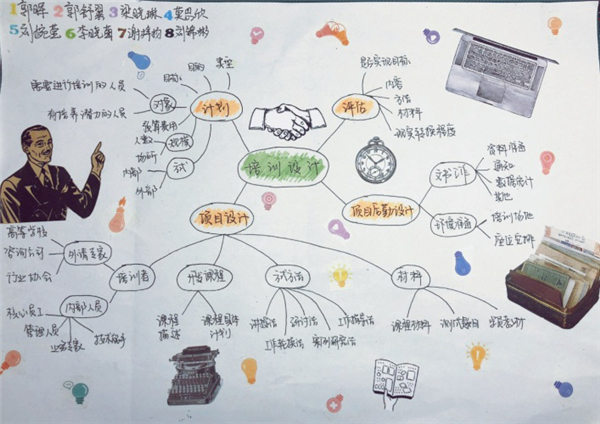 1郭晖 2郭舒翼 3梁晓琳 4莫巴欣
6李晓勇
培训设计
计划
类型
目的
目标
对象
需要进行培训的人员
有培养潜力的人员
规模
预算费用
人数
场所
内部
外部
评估
是否实现目标
内容
方法
材料
项目后勤设计
资料准备
通知
数据统计
其他
环境准备
培训场地
座位安排
项目设计
培训者
外请专家
高等学校
咨询公司
行业协会
内部人员
核心员工
管理人员
业务专家
技术能手
开发课程
课程
描述
课程具体
计划
讲授法
工作轮换法
研讨法
案例研究法
工作指导法
材料
课程材料
测试题目